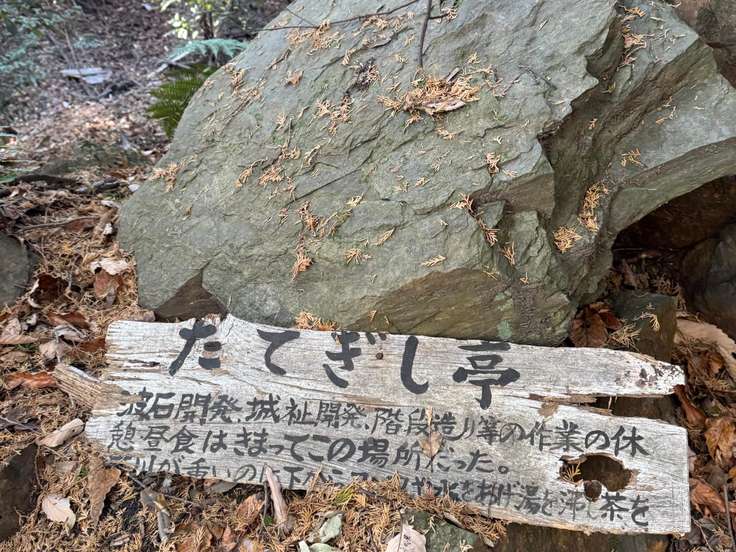 たてぎし亭
波石開発、城祉開発、階段造り等の作業の休
憩昼食はきまってこの場所だった。
が重いのに下から
水をあげ湯を沸し茶を